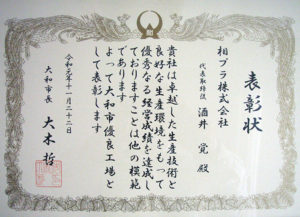 表彰状
相プラ株式会社
代表取締役 酒井 覚 殿
貴社は卓越した生産技術と
良好な生産環境をもって
優秀なる経営成績を達成し
ておりますことは他の模範
であります
よって大和市優良工場と
して表彰します
令和元年十一月二十二日
大和市長 大木 哲